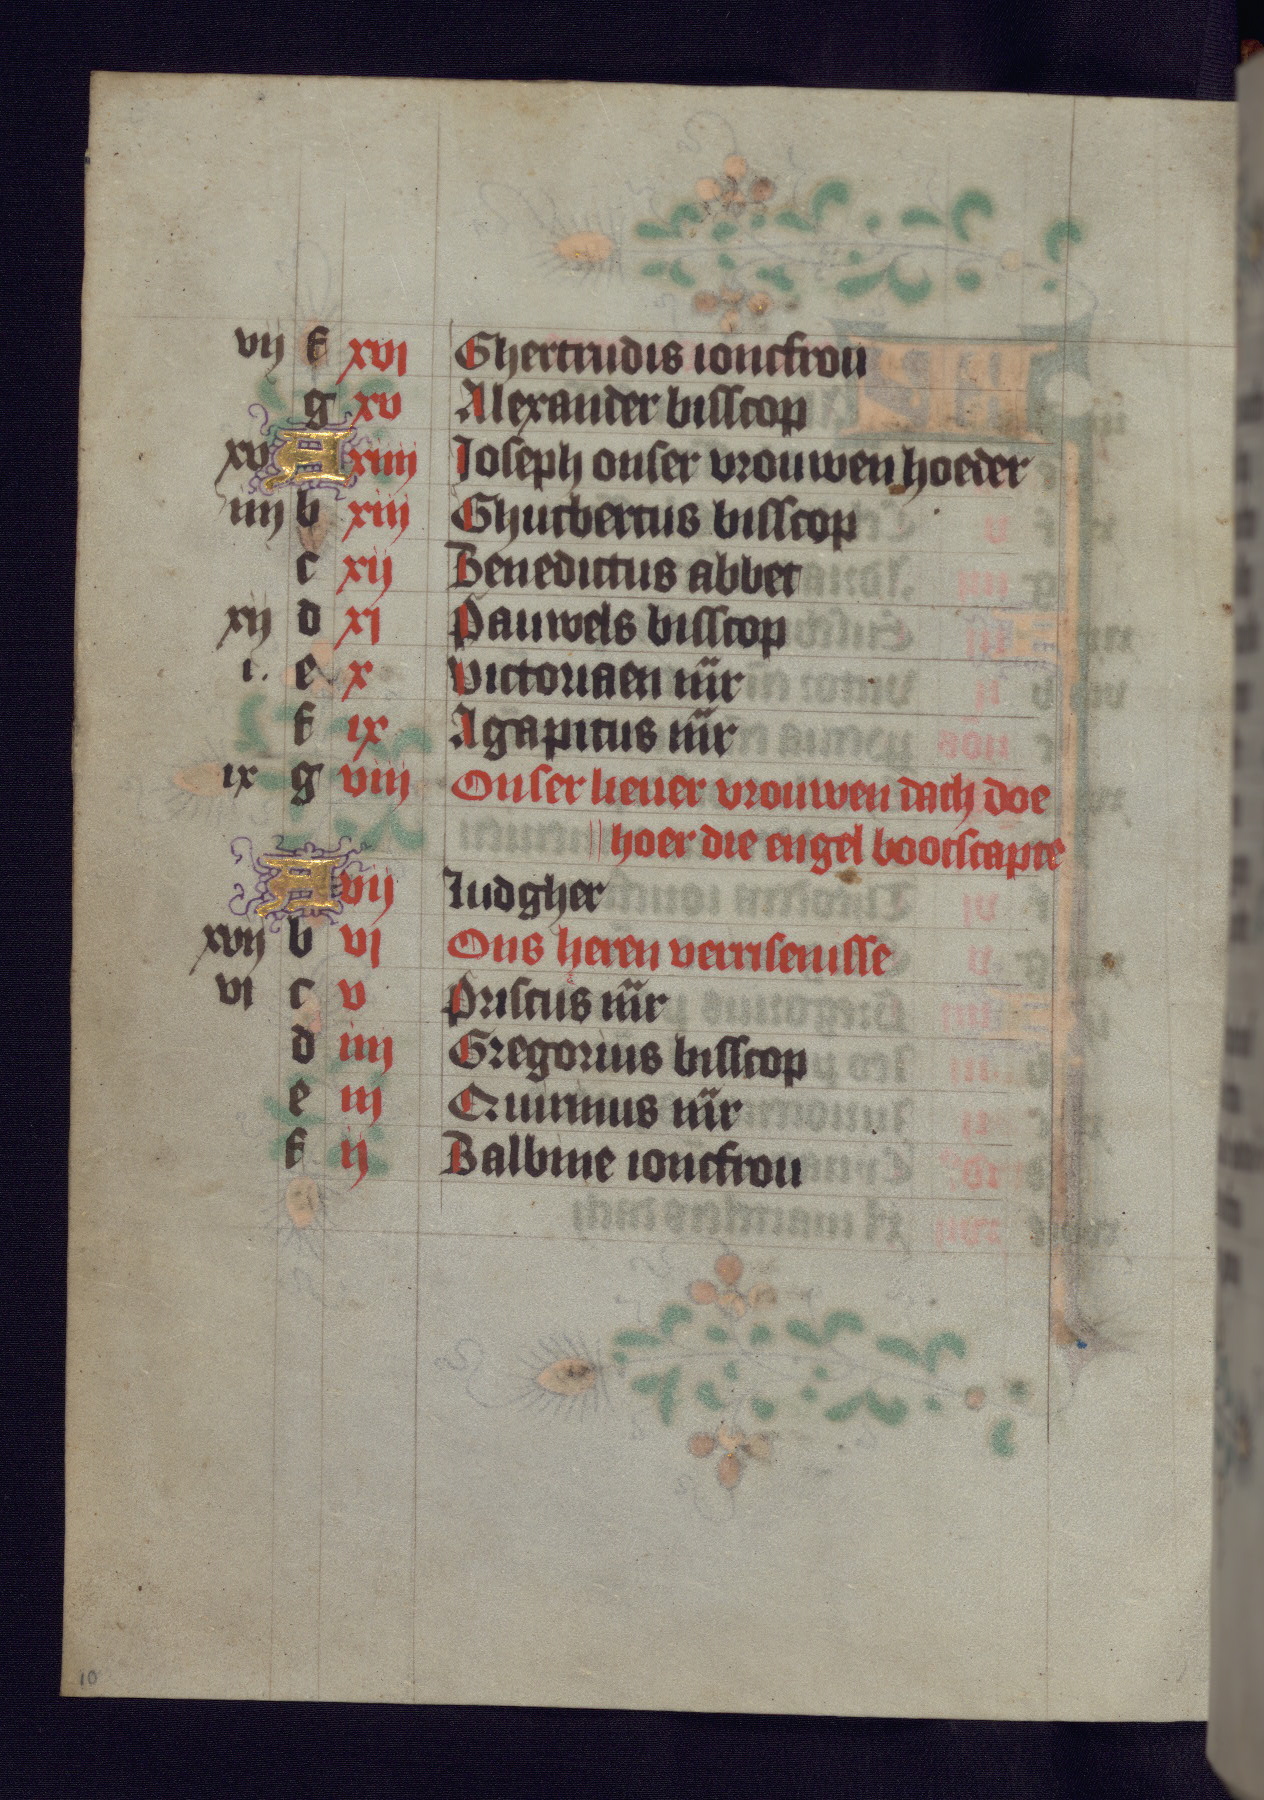 vij f xvj Ghertrudis ioncfrou
g xv Alexander bisscop
xv A xiiij Joseph onser vrouwen hoeder
iiij b xiij Ghutbertus bisscop
c xij Benedictus abbet
xij d xj Pauwels bisscop
i. e x Victoriaen m̄r
f ix Agapitus m̄r
ix g viij Onser lieuer vrouwen dach doe
hoer die engel bootscapte
A vij Ludgher
xvij b vj Ons heren verrisenisse
vj c v Priscus m̄r
d iiij Gregorius bisscop
e iij Quirinus m̄r
f ij Balbine ioncfrou
10